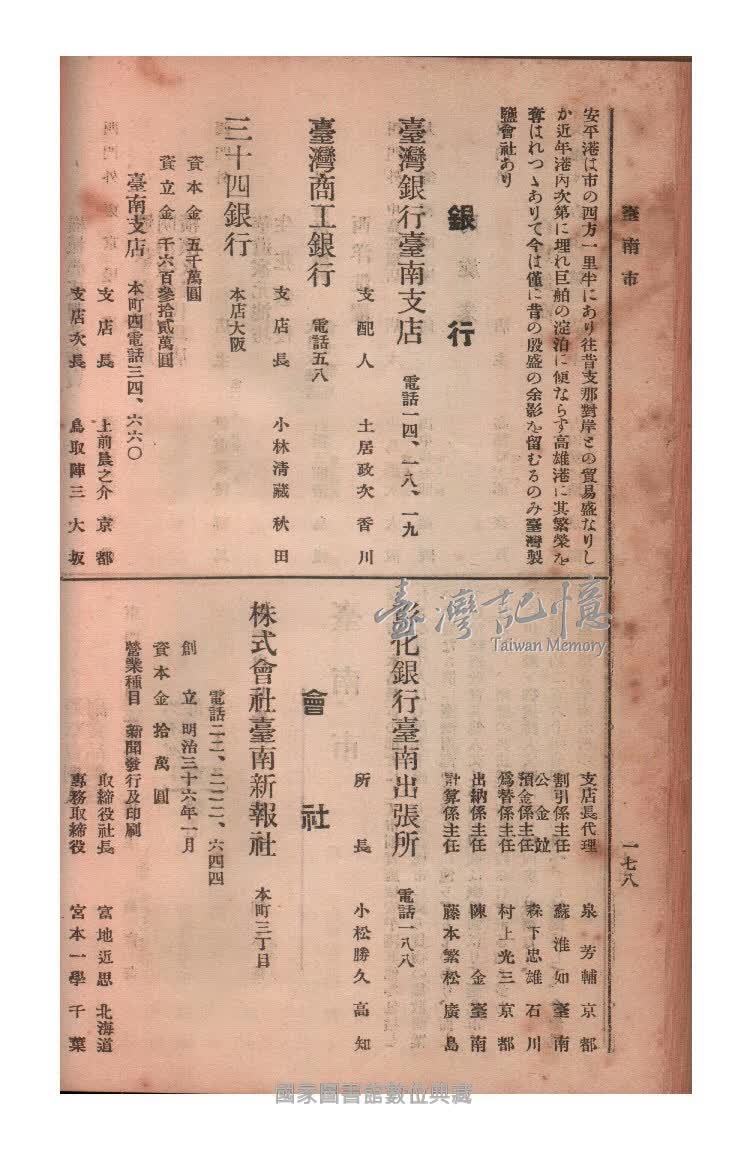 臺南市
一七八
安平港は市の四方一里半にあり往昔支那對岸との貿易盛なりし
か近年港內次第に埋れ巨舶の淀泊に便ならす高雄港に其繁榮を
奪はれつゝありて今は僅に昔の殷盛の余影を留むるのみ臺灣製
鹽會社あり
銀行
臺灣銀行臺南支店 電話一四、一八、一九
支配人 土居政次 香川
臺灣商工銀行 電話五八
支店長 小林淸藏 秋田
三十四銀行 本店大阪
資本金 五千萬圓
資立金 千六百參拾貳萬圓
臺南支店 本町四電話三四、六六〇
支店長 上前長之介 京都
支店次長 鳥取陣三 大坂
支店長代理 泉芳輔 京都
割引係主任 蘇淮如 臺南
公金竝
預金係主任 森下忠雄 石川
爲替係主任 村上光三 京都
出納係主任 陳金 臺南
計算係主任 藤本繁松 廣島
彰化銀行臺南出張所 電話一八八
所長 小松勝久 高知
會社
株式會社臺南新報社 本町三丁目
電話二二、二二二、六四四
創立 明治三十六年一月
資本金 拾萬圓
營業種目 新聞發行及印刷
取締役社長 富地近思 北海道
專務取締役 宮本一學 千葉
臺灣記憶
Taiwan Memory
國家圖書館數位典藏